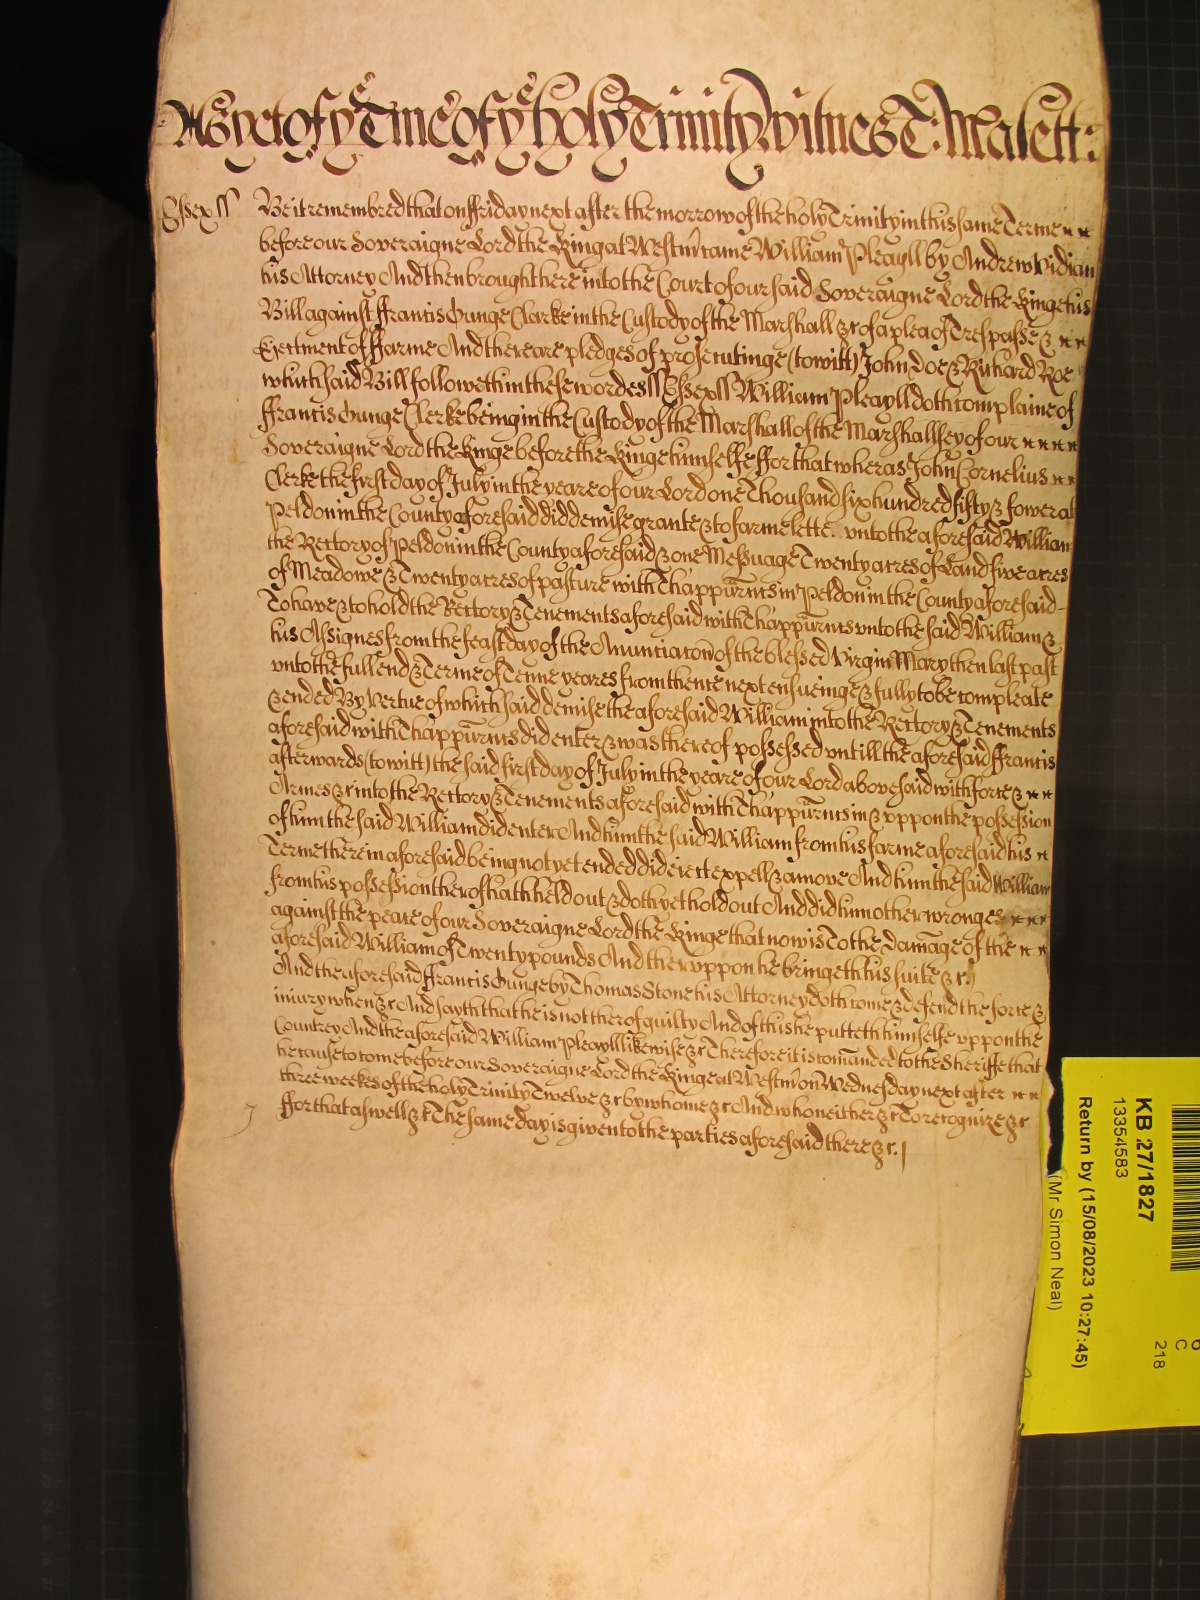 As yet of yͤ Tmē of yͤ holy Trinity witnes T: Malett:
Essex ss Be it remembred that on ffriday next after the morrow of the holy Trinity in this same Terme
before our Soveraigne Lord the King at Westm̄ came William Pleayll by Andrew Vidian
his Attorney And then brought here into the Court of our said Soveraigne Lord the Kinge his
Bill against ffrancis Gunge Clarke in the Custody of the Marshall &c of a plea of Trespasse &
Eiectment of ffarme And there are pledges of prosecutinge (to witt) John Doe & Richard Roe
which said Bill followeth in these wordes ss Essex ss William Pleaylldoth complaine of
ffrancis Gunge Clerke being in the Custody of the Marshall of the Marshallsey of our
Soveraigne Lord the Kinge before the Kinge himselfe ffor that wheras John Cornelius
Clerke the first day of July in the yeare of our Lord one Thousand six hundred fifty & fower at
Peldon in the County aforesaid did demise grante & to farme lette vnto the aforesaid William
the Rectory of Peldon in the County aforesaid & one Messuage Twenty acres of Land five acres
of Meadowe & Twenty acres of pasture with Th'appurn̄ts in Peldon in the County aforesaid
To have & to hold the Rectory & Tenements aforesaid with Th'appurn̄ts vnto the said William &
his Assignes from the feast day of the Anunciacōn of the blessed Virgin Mary then last past
vnto the full end & Terme of Tenne yeares from thence next ensueinge & fully to be compleate
& ended By Vertue of which said demise the aforesaid William into the Rectory & Tenements
aforesaid with Th'appurn̄ts did enter & was thereof possessed vntill the aforesaid ffrancis
afterwards (to witt) the said first day of July in the yeare of our Lord abovesaid with force &
Armes &c into the Rectory & Tenements aforesaid with Th'appurn̄ts in & vppon the possession
of him the said William did enter And him the said William from his farme aforesaid his
Terme therein aforesaid being not yet ended did eiect expell & amove And him the said William
from his possession therof hath held out & doth yet hold out And did him other wronges
against the peace of our Soveraigne Lord the Kinge that now is To the Damāge of the
aforesaid William of Twenty pounds And thervppon he bringeth his suite &c.
And the aforesaid ffrancis Gunge by Thomas Stone his Attorney doth come & defend the force &
iniury when &c And sayth that he is not therof guilty And of this he putteth himselfe vppon the
Countrey And the aforesaid William Pleayll likewise &c Therefore it is comānded to the Sheriffe that
he cause to come before our Soveraigne Lord the Kinge at Westm̄ on Wednesday next after
three weekes of the holy Trinity Twelve &c by whome &c And who neither &c To recognize &c
ffor that aswell &c The same day is given to the parties aforesaid there &c.
KB 27/1827
13354583
Return by (15/08/2023 10:27:45)
(Mr Simon Neal)
C
218